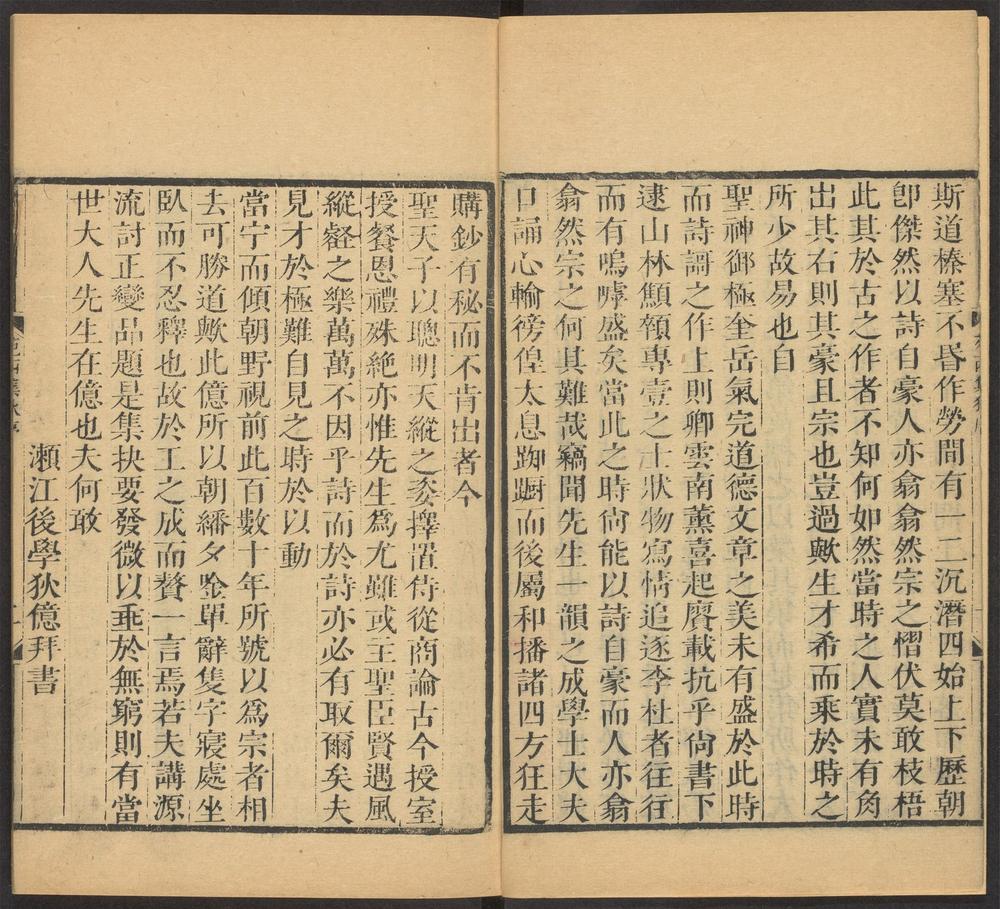 斯道榛塞不昏作勞間有一二沉潛四始上下歷朝
卽傑然以詩自豪人亦翕翕然宗之慴伏莫敢枝梧
此其於古之作者不知何如然當時之人實未有角
出其右則其豪且宗也豈過歟生才希而乘於時之
所少故易也自
聖神御極奎岳氣完道德文章之美未有盛於此時
而詩謌之作上則卿雲南薰喜起賡載抗乎尙書下
逮山林顦顇專壹之士狀物寫情追逐李杜者往行
而有嗚嘑盛矣當此之時尙能以詩自豪而人亦翕
翕然宗之何其難哉竊聞先生一韻之成學士大夫
口誦心輸徬徨太息踟蹰而後屬和播諸四方狂走
購鈔有秘而不肯出者今
聖天子以聰明天縱之姿擇置侍從商論古今授室
授餐恩禮殊絶亦惟先生爲尤雖或王聖臣賢遇風
縱壑之樂萬萬不因乎詩而於詩亦必有取爾矣夫
見才於極難自見之時於以動
當宁而傾朝野視前此百數十年所號以爲宗者相
去可勝道歟此億所以朝繙夕唫單辭隻字寢處坐
臥而不忍釋也故於工之成而贅一言焉若夫講源
流討正變品題是集抉要發微以垂於無窮則有當
世大人先生在億也夫何敢
瀨江後學狄億拜書